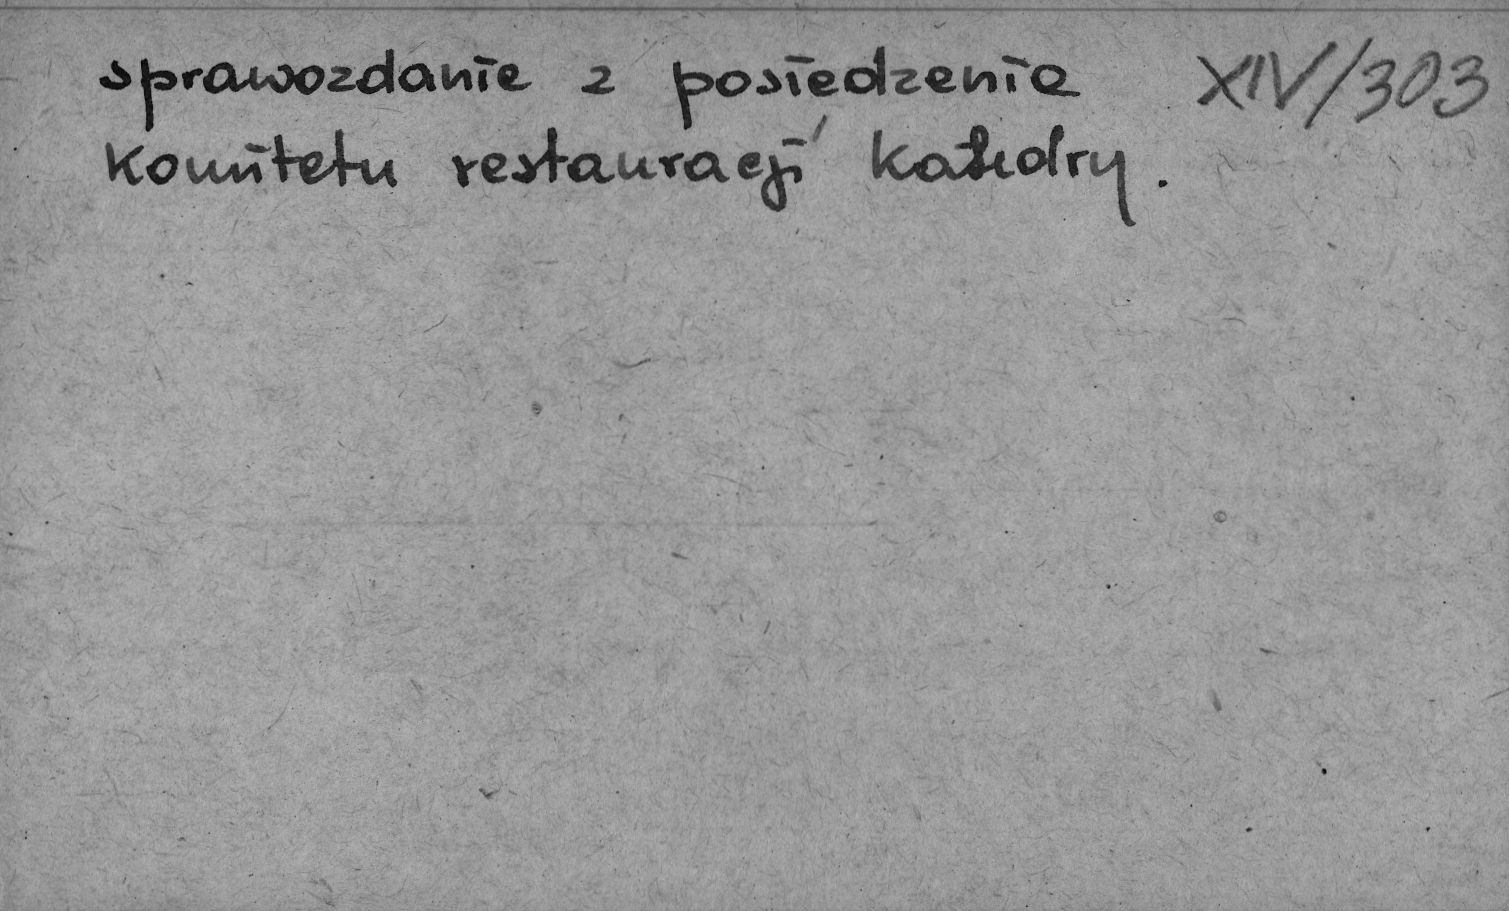 sprawozdanie z posiedzenie XIV/303
komitetu restauracji katedry.